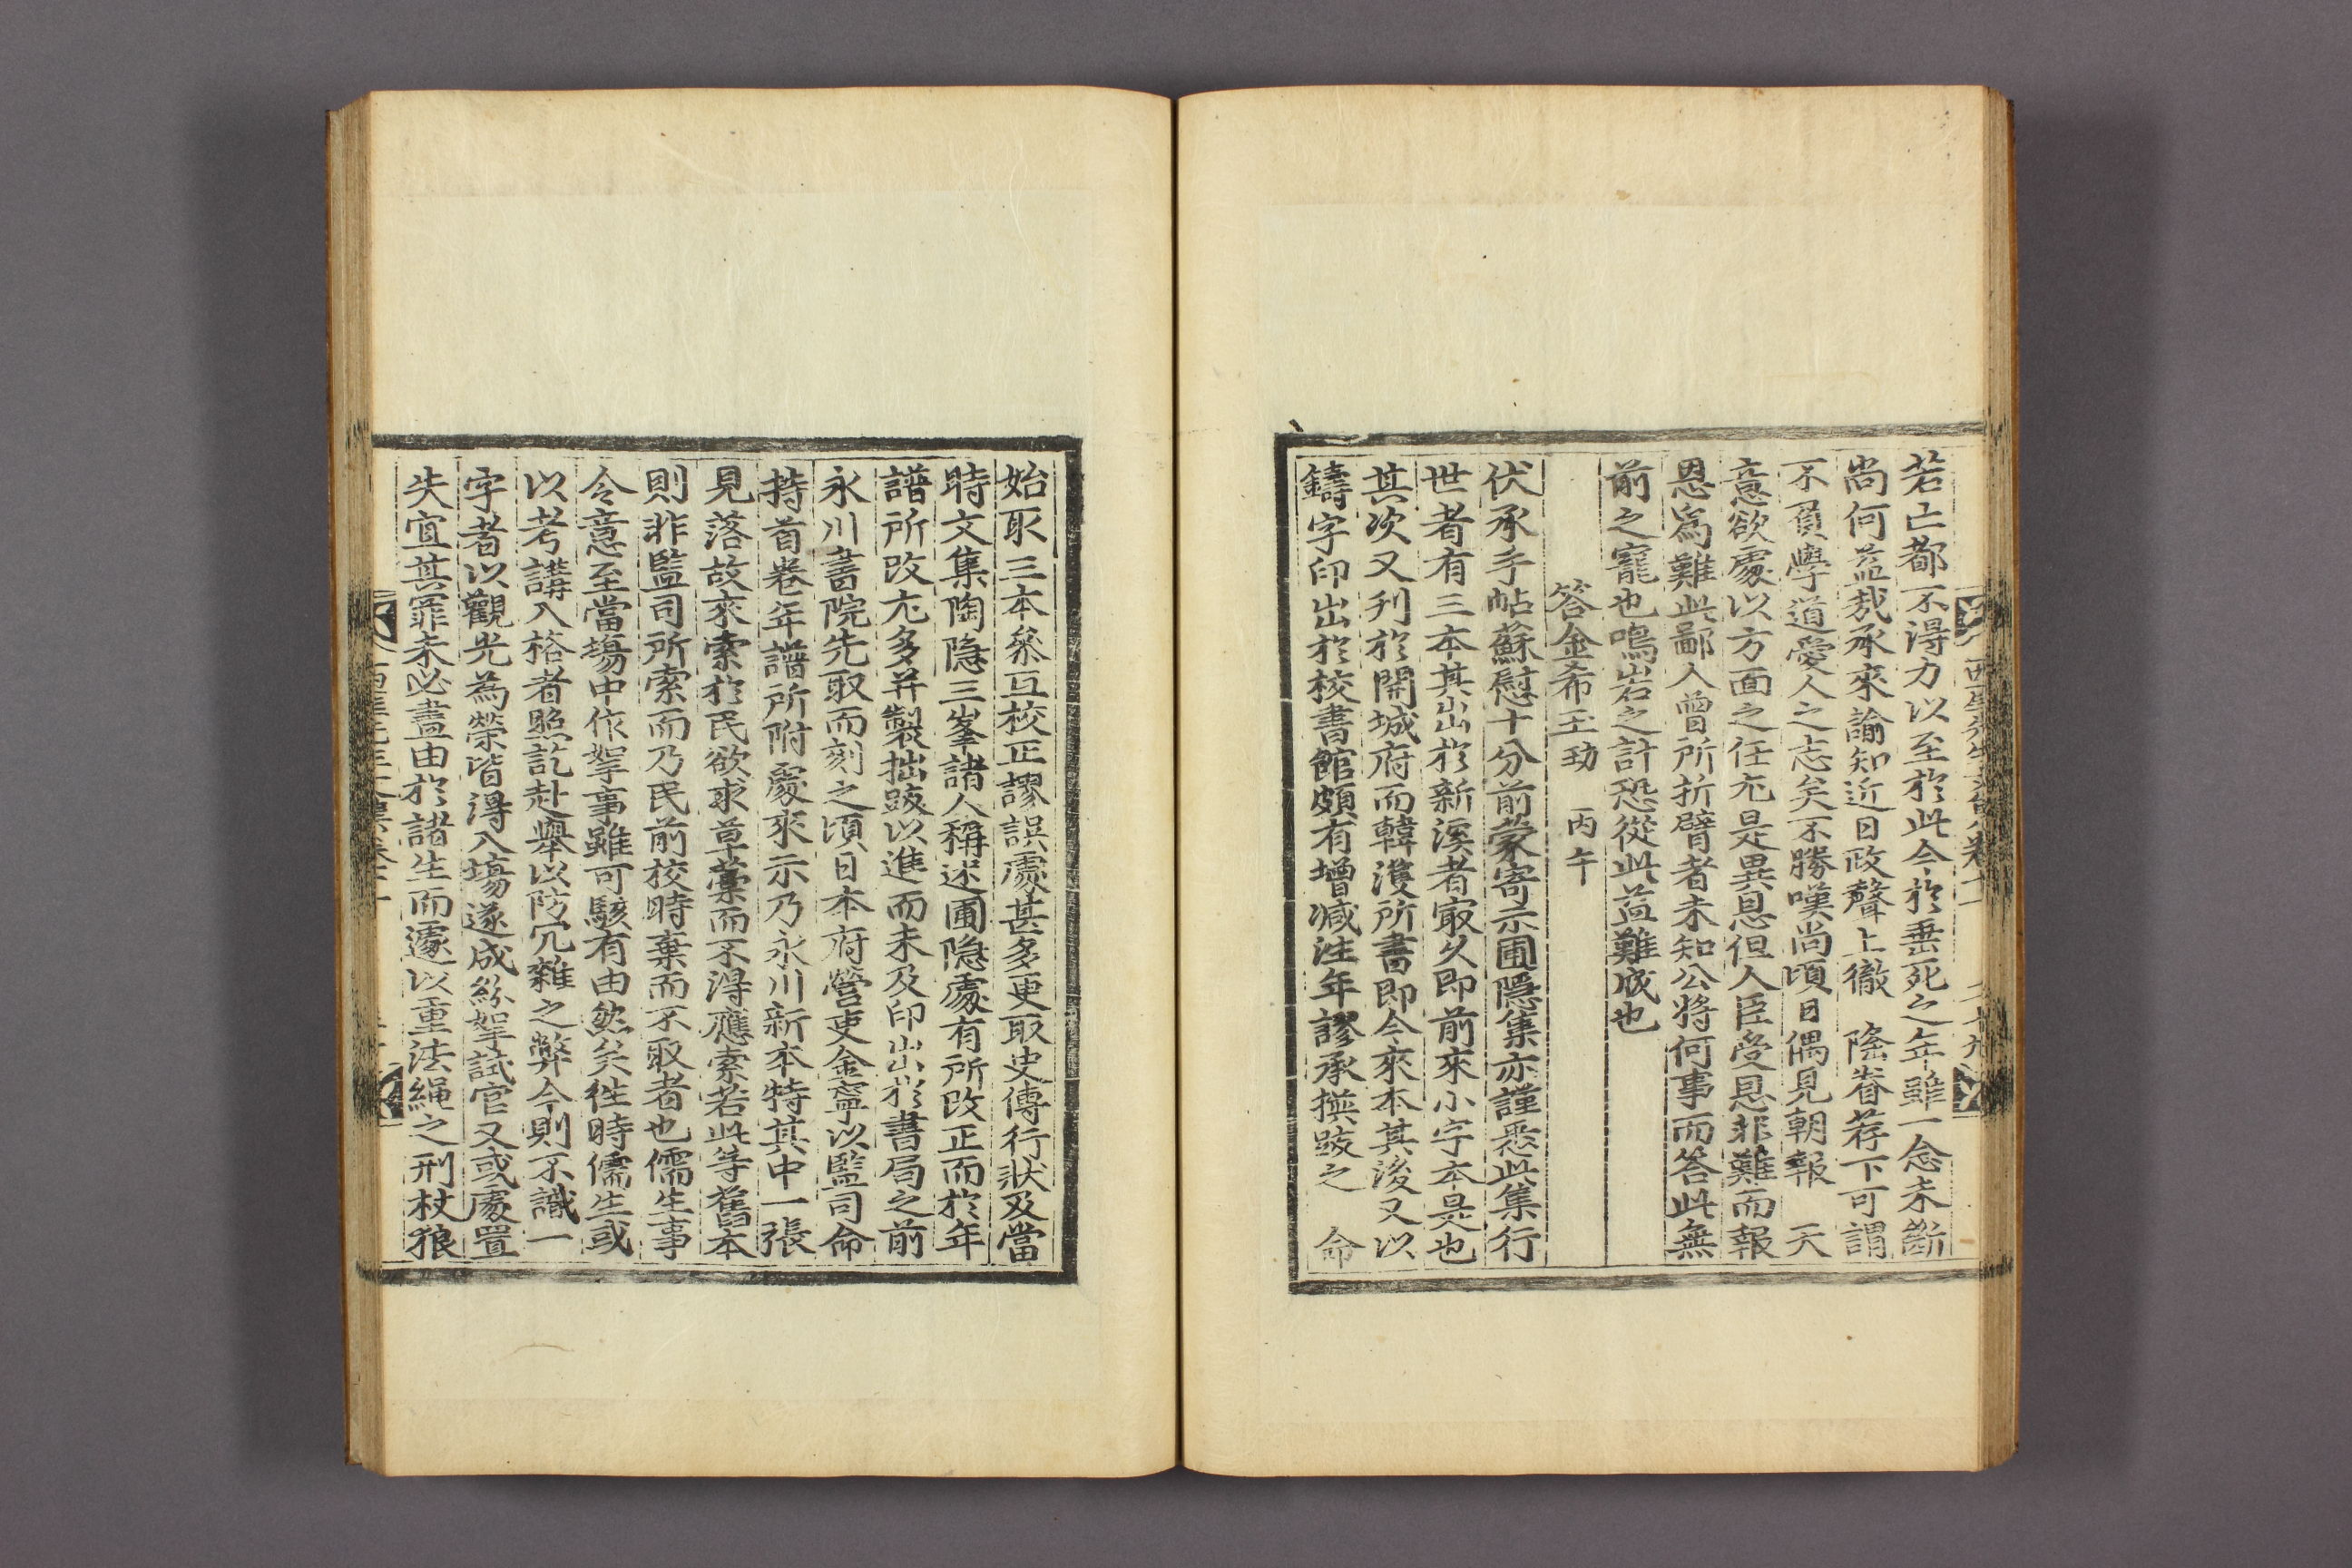 若亡都不得力以至於此今於垂死之年雖一念未斷
尚何益哉承來諭知近日政聲上徹 隂眷荐下可謂
不負學道愛人之志矣不勝嘆尚頃日偶見朝報 天
意欲處以方面之任尤是異恩但人臣受恩非難而報
恩爲難此鄙人曾所折臂者未知公將何事而答此無
前之寵也鳴岩之計恐從此益難成也
答金希玉玏 丙午
伏承手帖蘇慰十分前蒙寄示圃隱集亦謹悉此集行
世者有三本其出於新溪者㝡久即前來小字本是也
其次又刋於開城府而韓濩所書即今來本其後又以
鑄字印出於校書館頗有增减注年謬承撰跋之 命
始取三本叅互校正謬誤處甚多更取史傳行狀及當
時文集陶隐三峯諸人稱述圃隐處有所改正而於年
譜所改尤多并製拙跋以進而未及印出於書局之前
永川書院先取而刻之頃日本府營吏金寧以監司命
持首卷年譜所附處來示乃永川新本特其中一張
見落故來索於民欲求草藁而不得應索若此等舊本
則非監司所索而乃民前校時棄而不取者也儒生事
令意至當塲中作挐事雖可駭有由然矣徃時儒生或
以考講入格者照訖赴擧以防冗雜之弊今則不識一
字者以觀光為榮皆得入塲遂成紛挐試官又或處置
失宜其罪未必盡由於諸生而遽以重法繩之刑杖狼